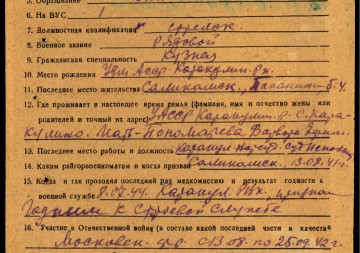 5. Образование
6. На ВУС 1
7. Должностная квалификация стрелок
8. Военное звание Рядовой
9. Гражданская специальность Кузнец
10. Место рождения Удм. Асср. Каракулин. р-н.
11. Последнее место жительства Соликамск.,
12. Где проживает в настоящее время семья (фамилия, имя и отчество жены или
родителей и точный их адрес) УАССР Каракулин. р. с. Кара-
кулино. Мать - Пономарева Варвара
13. Последнее место работы и должность Каракул.
14. Каким райгорвоенкоматом и когда призван Соликамск. 13.08.41г.
15. Когда и где проходил последний раз медкомиссию и результат годности к
военной службе 8.07.44. Каракул. РВК, признан
Годным к строевой службе
16. Участие в Отечественной войне (в составе какой последней части и в качестве
Московск. фр. с 13.08. по 25.09.42г.